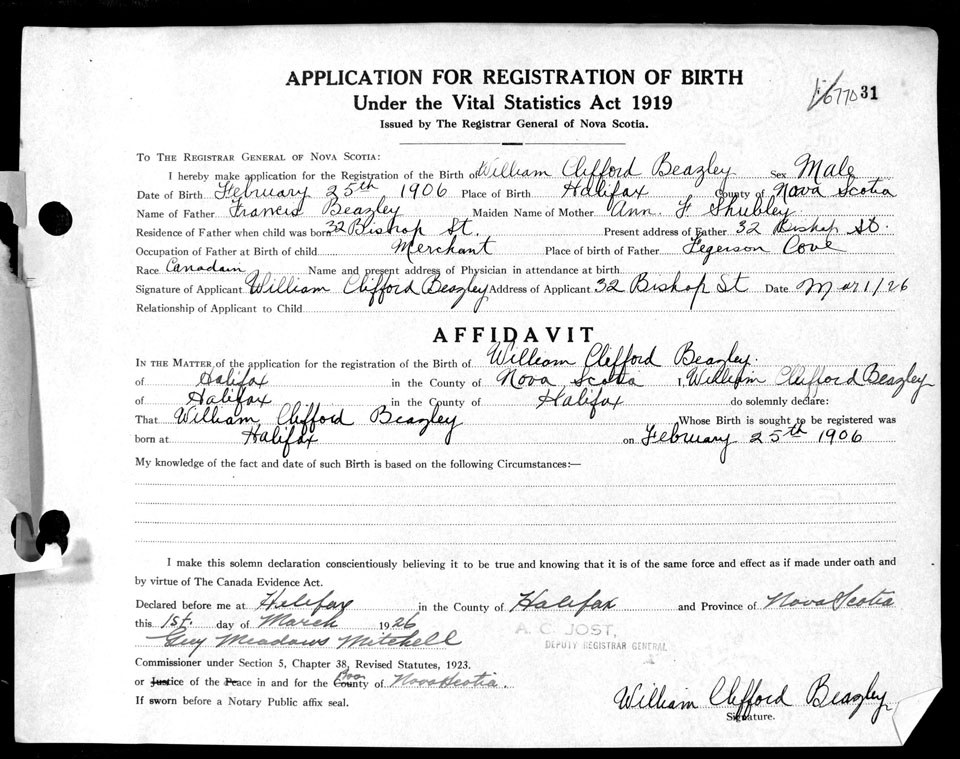 APPLICATION FOR REGISTRATION OF BIRTH
31
Under the Vital Statistics Act 1919
Issued by The Registrar General of Nova Scotia.
TO THE REGISTRAR GENERAL OF NOVA SCOTIA:
I hereby make application for the Registration of the Birth of William Clifford Beazley Sex Male
Date of Birth February 25th 1906 Place of Birth Halifax County of Nova Scotia
Name of Father Francis Beazley Maiden Name of Mother Ann. F. Shubley
Residence of Father when child was born 32 Bishop St. Present address of Father 32 Bishop St.
Occupation of Father at Birth of child Merchant Place of birth of Father Fegerson Cove
Race Canadain Name and present address of Physician in attendance at birth
Signature of Applicant William Clifford Beazley Address of Applicant 32 Bishop St Date Mar 1/26
Relationship of Applicant to Child
AFFIDAVIT
IN THE MATTER of the application for the registration of the Birth of William Clifford Beazley.
of Halifax in the County of Nova Scotia I, William Clifford Beazley
of Halifax in the County of Halifax do solemnly declare:
That William Clifford Beazley Whose Birth is sought to be registered was
born at Halifax on February 25th 1906
My knowledge of the fact and date of such Birth is based on the following Circumstances:—
I make this solemn declaration conscientiously believing it to be true and knowing that it is of the same force and effect as if made under oath and
by virtue of The Canada Evidence Act.
Declared before me at Halifax in the County of Halifax and Province of Nova Scotia
this 1st. day of March 1926
A. C. JOST,
DEPUTY REGISTRAR GENERAL
Guy Meadows Mitchell
Commissioner under Section 5, Chapter 38, Revised Statutes, 1923.
or Justice of the Peace in and for the County of Nova Scotia.
If sworn before a Notary Public affix seal.
William Clifford Beazley
Signature.